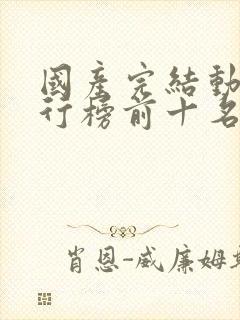 國產完結動
行榜前十名
肖恩-威廉姆